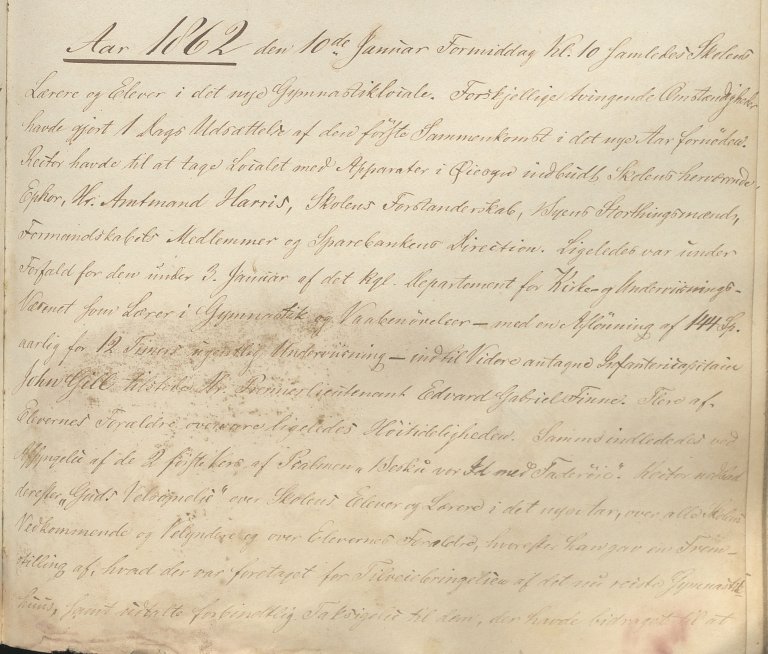 Aar 1862 den 10de Januar Formiddag Kl. 10 samledes Skolens
Lærere og Elever i det nye Gymnastiklocale. Forskjellige tvingende Omstændigheder
havde gjort 1 Dags Udsættelse af den første Sammenkomst i det nye Aar fornøden.
Rector havde til at tage Localet med Apparater i Øiesyn indbudt Skolens herværende
Ephor, Hr. Amtmand Harris, Skolens Forstanderskab, Byens Storthingsmænd,
Formandskabets Medlemmer og Sparebankens Direction. Ligeledes var under
Forfald for den under 3. Januar af det kgl. Departement for Kirke- og Undervisnings-
Væsenet som Lærer i Gymnastik og Vaabenøvelser – med en Aflønning af 144 Sp.
aarlig for 12 Timers ugentlig Undervisning – indtil Videre antagne Infantericapitain
John Gill tilstede Hr. Premierlieutenant Edvard Gabriel Finne. Flere af
Elevernes Forældre overvare ligeledes Høitideligheden. Samme indlededes ved
Afsyngelse af de 2 første Vers af Psalmen „ vor med Faderøie“. Rector nedbad
derefter „Guds Velsignelse“ over Skolens Elever og Lærere i det nye Aar, over alle Skolens
Vedkommende og Velyndere og over Elevernes Forældre, hvorefter han gav en Frem-
stilling af, hvad der var foretaget for Tilveiebringelsen af det nu reiste Gymnastik-
huus, samt udtalte forbindtlig Taksigelse til dem, der havde bidraget til at